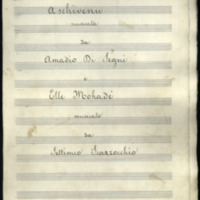 Aschivenu
musicato
da
Amadio Di Segni
e
Elle Mohadè
musicato
da
Settimio Scazzocchio